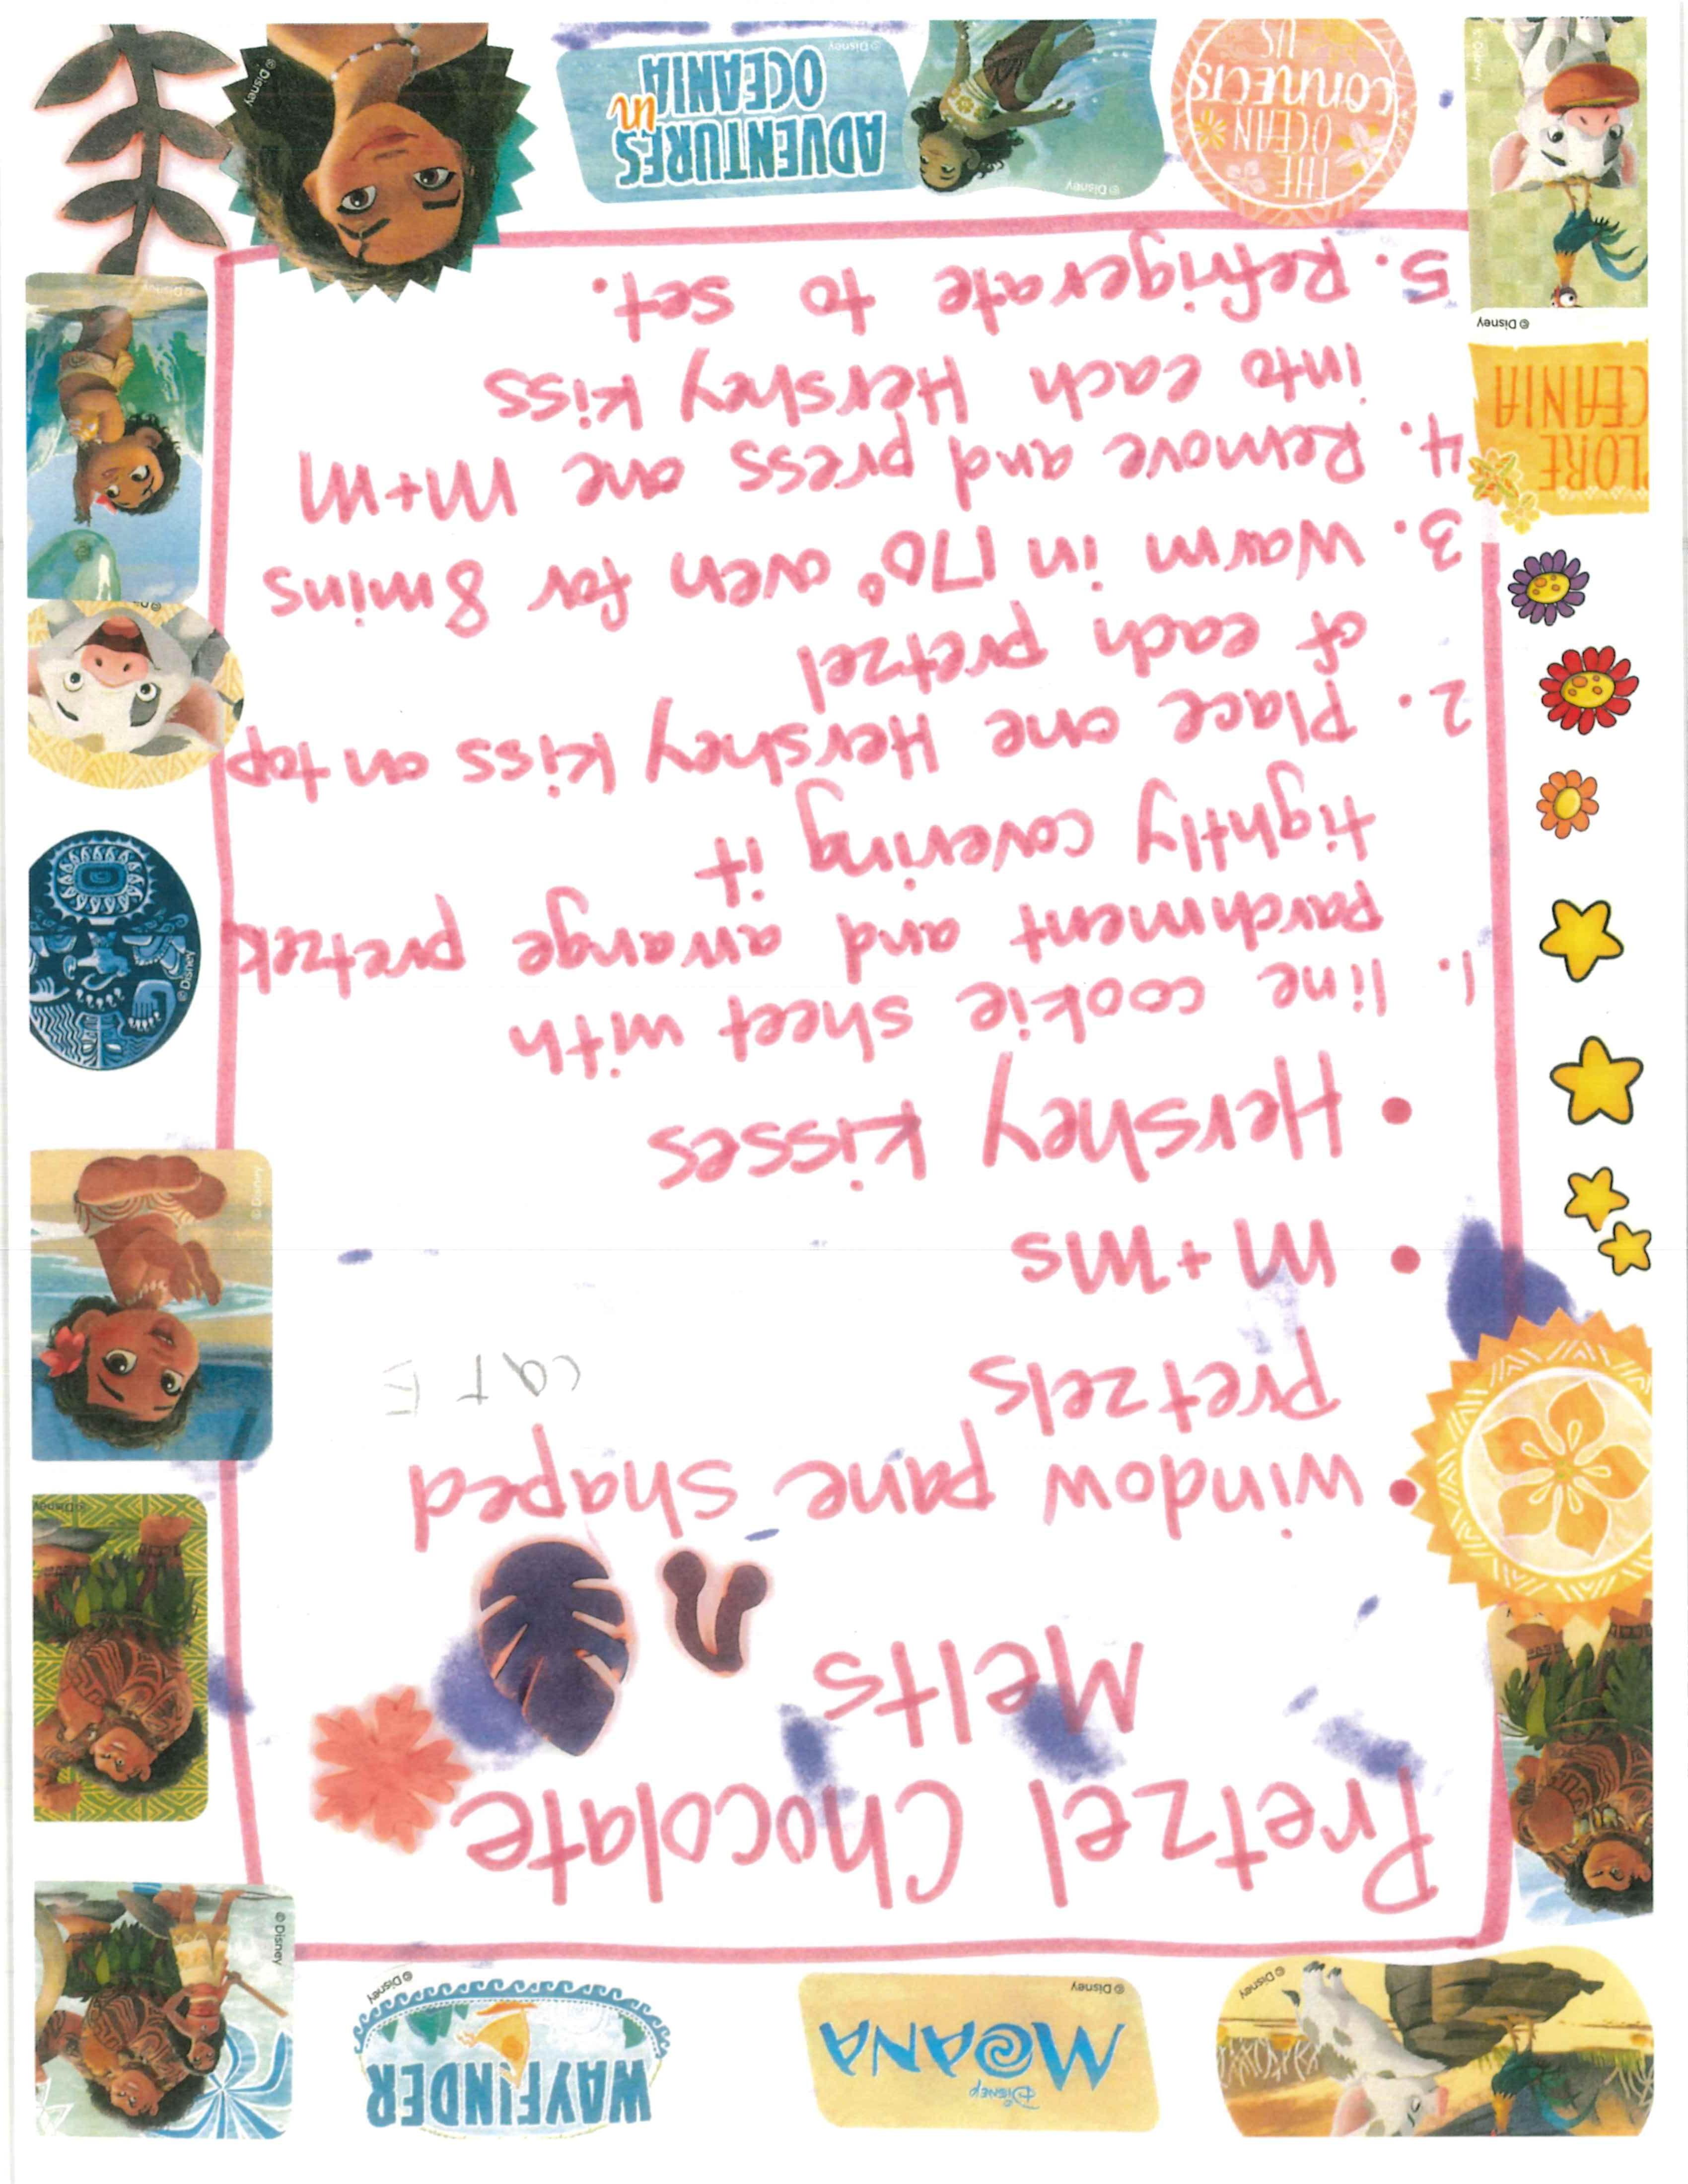 © Disney
Disney
MOANA
© Disney
WAYFINDER
© Disney
© Disney
Pretzel Chocolate
Melts
• window pane shaped
pretzels
• M+Ms
• Hershey kisses
1. line cookie sheet with
parchment and arrange pretzels
tightly covering it
2. Place one Hershey kiss on top
of each pretzel
3. Warm in 170° oven for 8 mins
4. Remove and press one M+M
into each Hershey kiss
5. Refrigerate to set.
© Disney
© Disney
© Disney
© Disney
PLORE
CEANIA
© Disney
© Disney
THE
OCEAN
CONNECTS
US
© Disney
ADVENTURES
in
OCEANIA
© Disney
© Disney